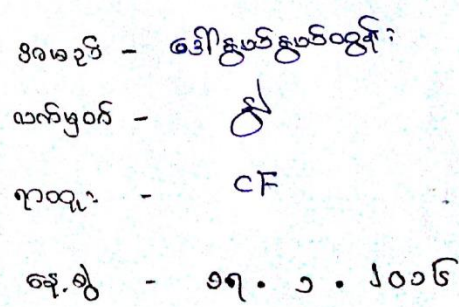 အမည် - ဒေါ်နွယ်နွယ်ထွန်း
လက်မှတ် -
ရာထူး - CF
နေ့စွဲ - ၁၅.၁.၂၀၁၆